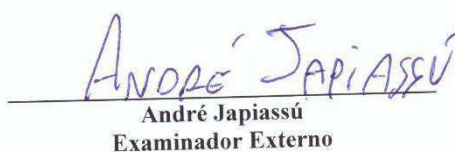 ANDRÉ JAPIASSÚ
André Japiassú
Examinador Externo